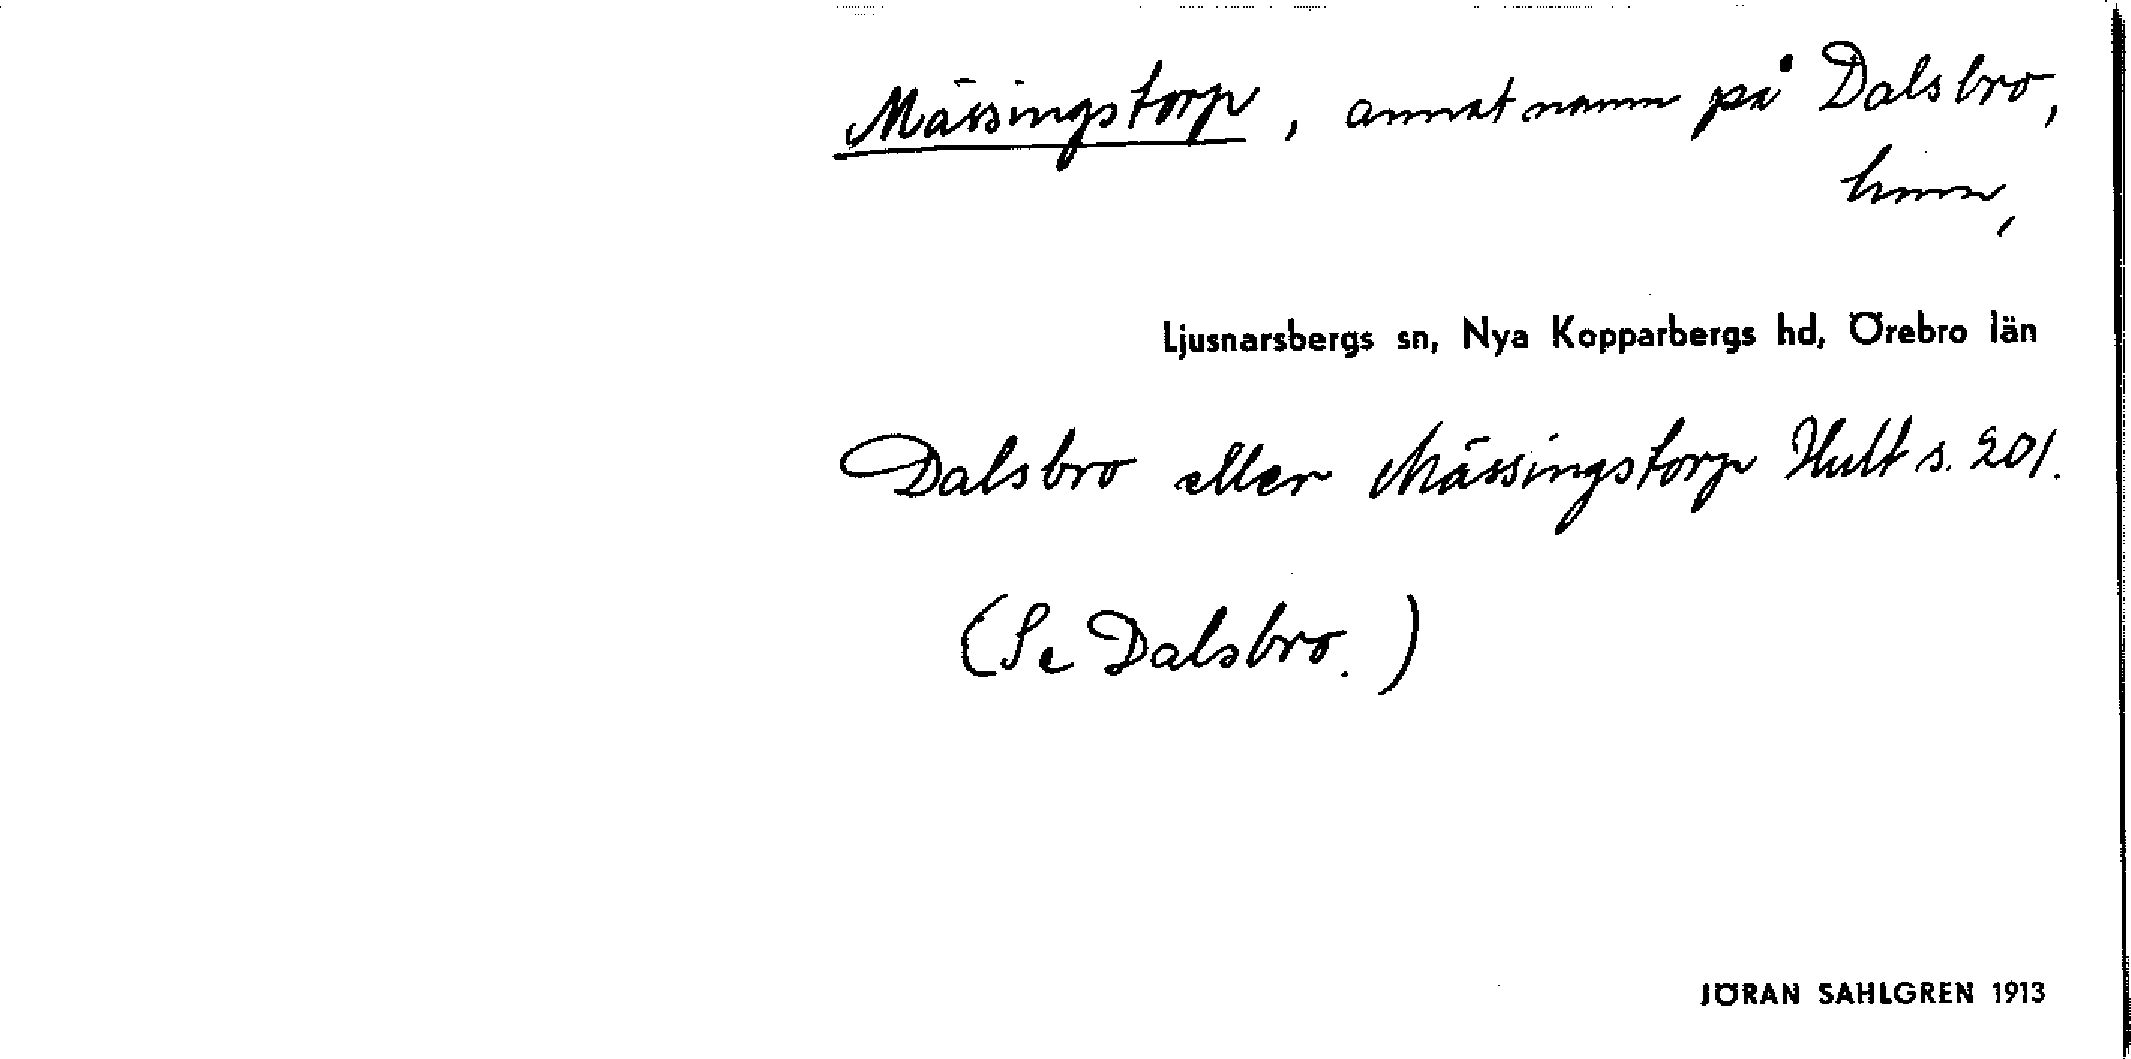 Mässingstorp, annat namn på Dalsbro,
Ljusnarsbergs sn, Nya Kopparbergs hd, Örebro län
Dalsbro eller Mässingstorp Hult s. 201.
(Se Dalsbro.)
JÖRAN SAHLGREN 1913